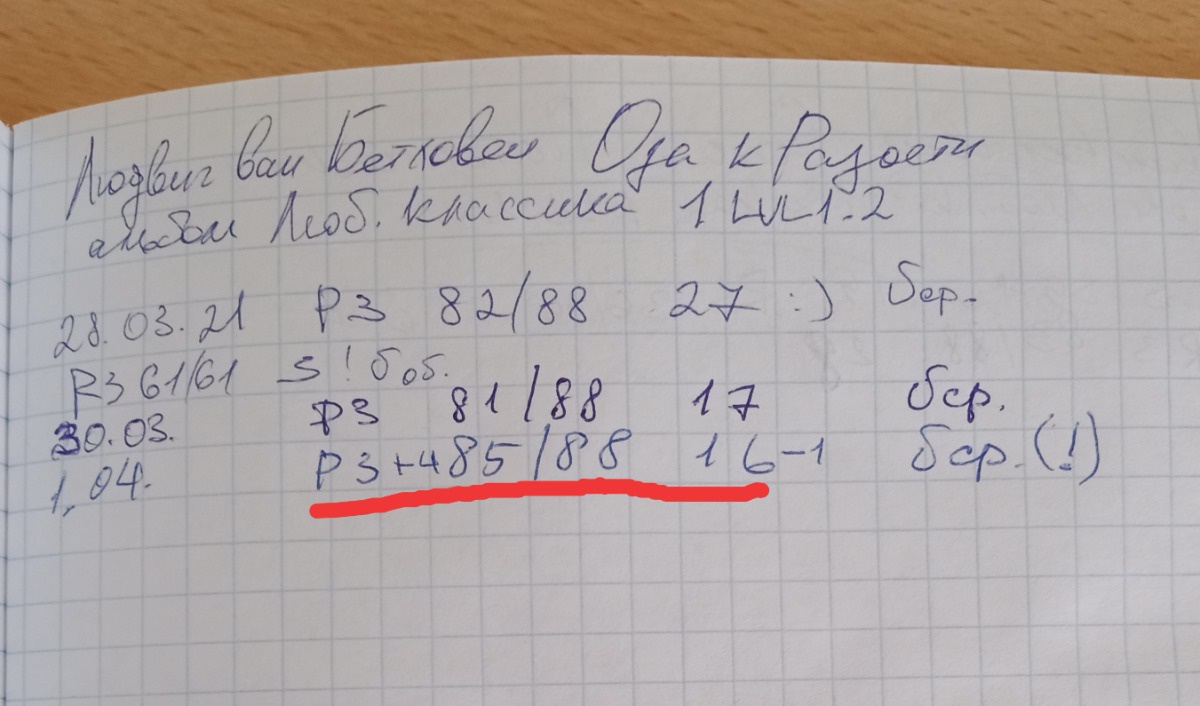 Людвиг ван Бетховен Ода к Радости
альбом Люб. классика 1 LVL 1.2
28.03.21 P3 82/88 27 :) бср.
R3 61/61 S!
30.03. P3 81/88 17 бср.
1,04. P3+4 85/88 16-1 бср. (!)